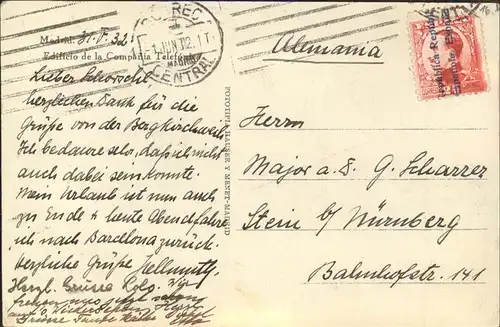 CORREO
1 JUN 32 1T
MADRID
CENTRAL
República Española
Madrid 31.V.32
Edificio de la Compañía Telefónica
Alemania
Lieber Schorschl
herzlichen Dank für die
Grüße von der Bergkirchweih
Ich bedaure sehr, daß ich nicht
auch dabei sein konnte.
Mein Urlaub ist nun auch
zu Ende & heute Abend fahre
ich nach Barcelona zurück.
Herzliche Grüße Hellmuth
Herzl. Grüsse Wir
freuen uns jetzt schon
auf's Wiedersehen
Grüsse Tante
FOTOTIPIA HAUSER Y MENET.-MADRID
Herrn
Major a. D. G. Scharrer
Stein b/ Nürnberg
Bahnhofstr. 141